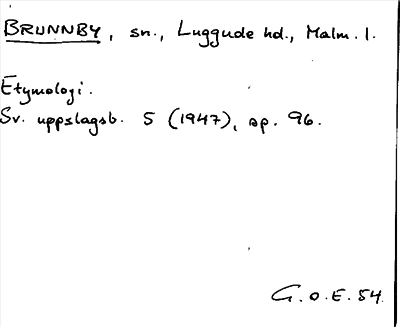 BRUNNBY, sn., Luggude hd., Malm. l.
Etymologi.
Sv. uppslagsb. 5 (1947), sp. 96.
G.O.E. 54.